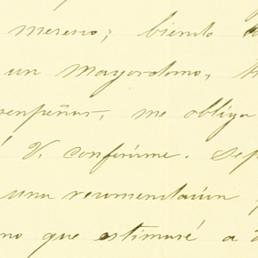 mereseo; biendo
un mayordomo,
me obliga
V. confirme.
una recomendacion
que estimaré a